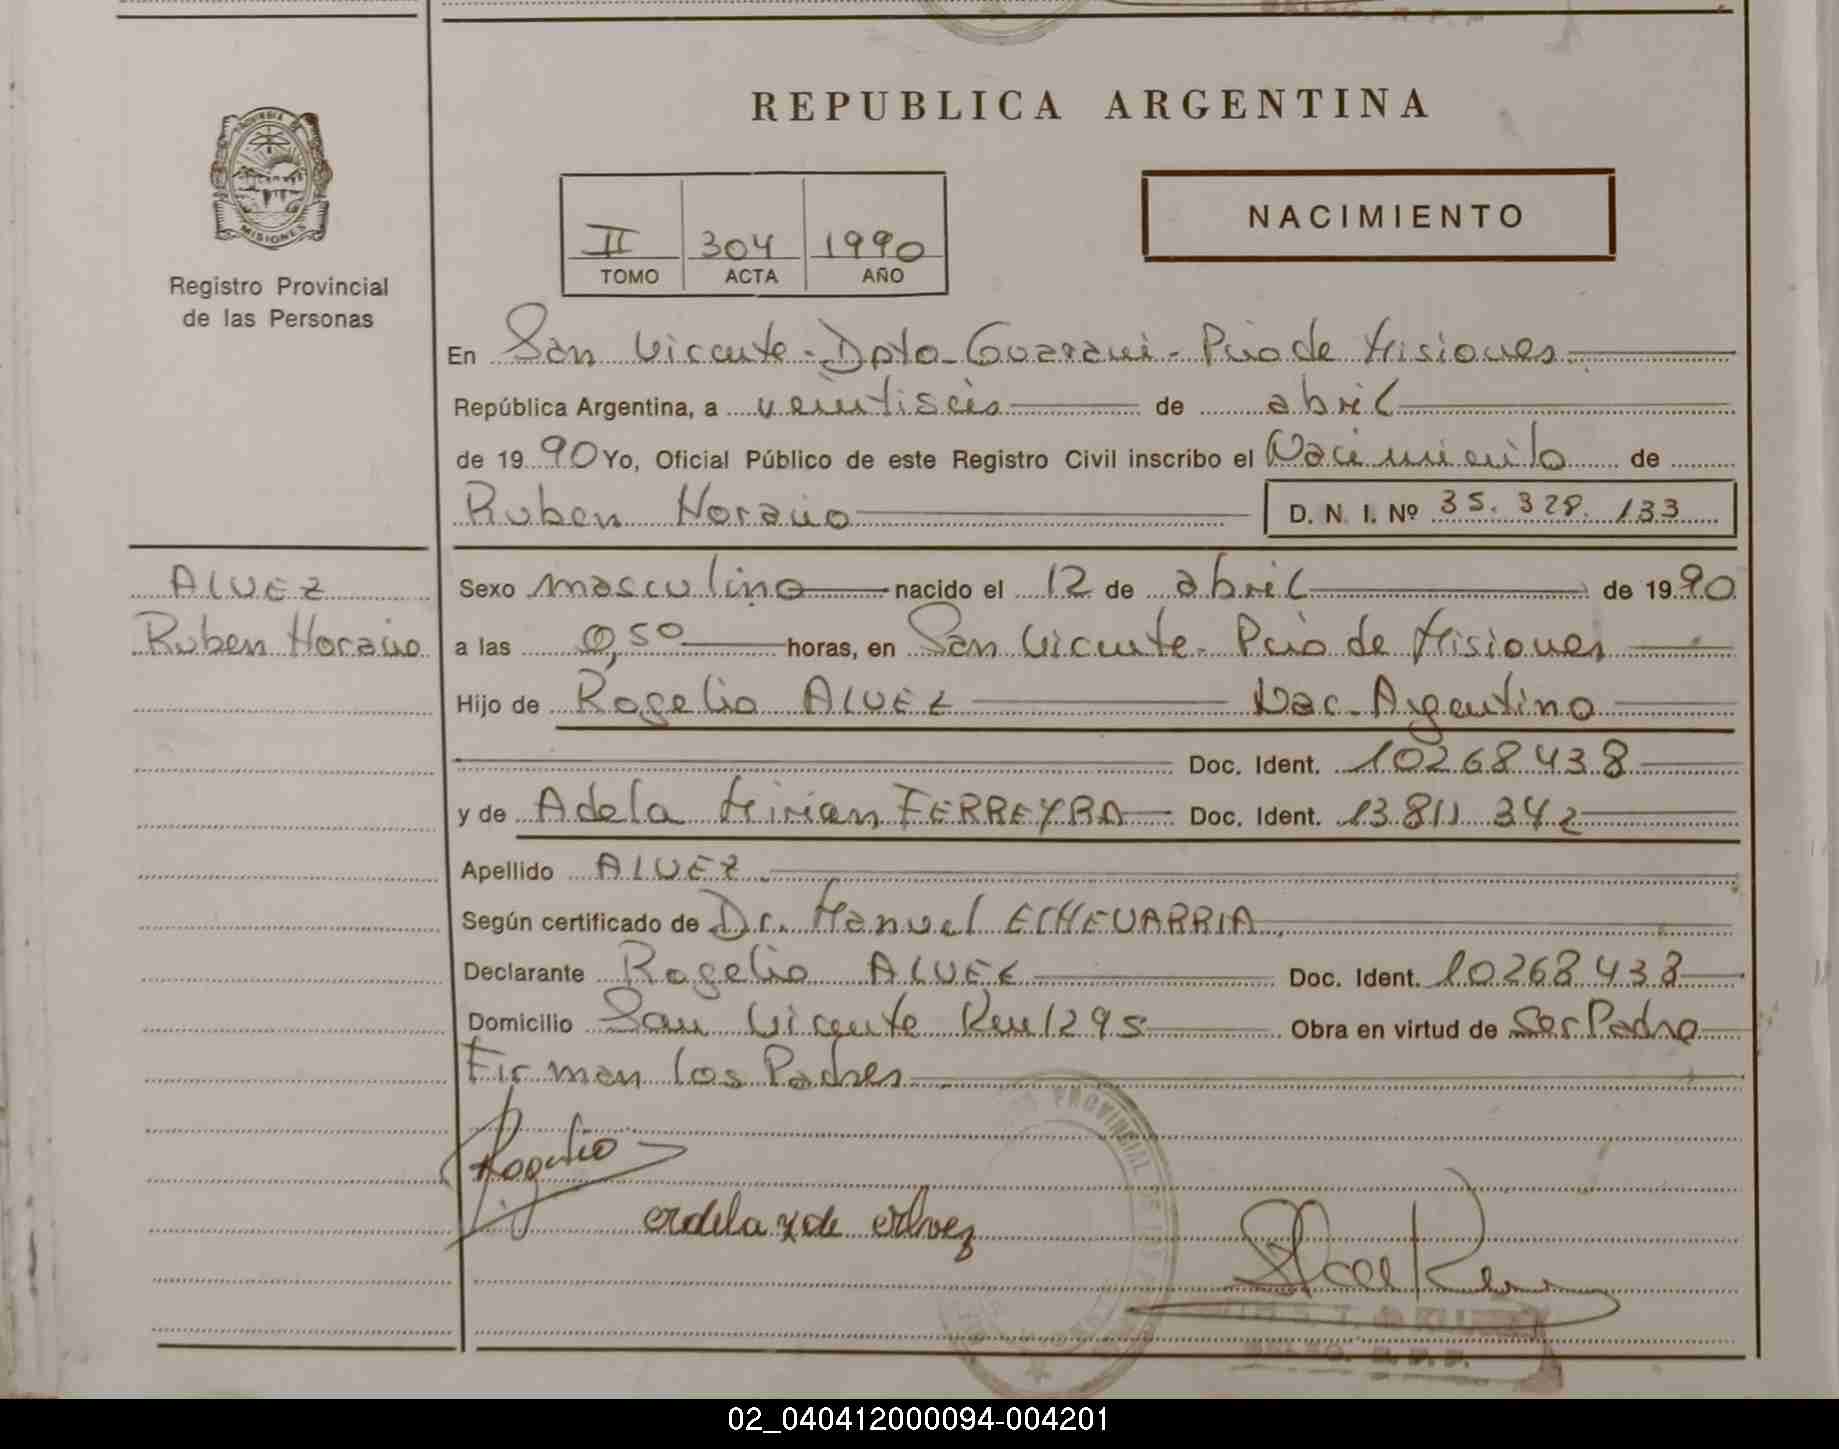 REPUBLICA ARGENTINA
PROVINCIA DE
MISIONES
Registro Provincial
de las Personas
II 304 1990
TOMO ACTA AÑO
NACIMIENTO
En San Vicente - Dpto Guarani - Pcio de Misiones
República Argentina, a veintiseis de abril
de 19 90 Yo, Oficial Público de este Registro Civil inscribo el Nacimiento de
Ruben Horacio D. N. I. Nº 35. 328. 133
ALVEZ
Ruben Horacio
Sexo masculino nacido el 12 de abril de 19 90
a las 0,50 horas, en San Vicente - Pcio de Misiones
Hijo de Rogelio ALVEZ Nac. Argentino
Doc. Ident. 10268438
y de Adela Mirian FERREYRA Doc. Ident. 13.811.342
Apellido ALVEZ
Según certificado de Dr. Manuel ECHEVARRIA
Declarante Rogelio ALVEZ Doc. Ident. 10268438
Domicilio San Vicente Km 1295 Obra en virtud de Ser Padre
Firman los Padres
PROVINCIAL DE LAS
Rogelio
Adela de Alvez
02_040412000094-004201